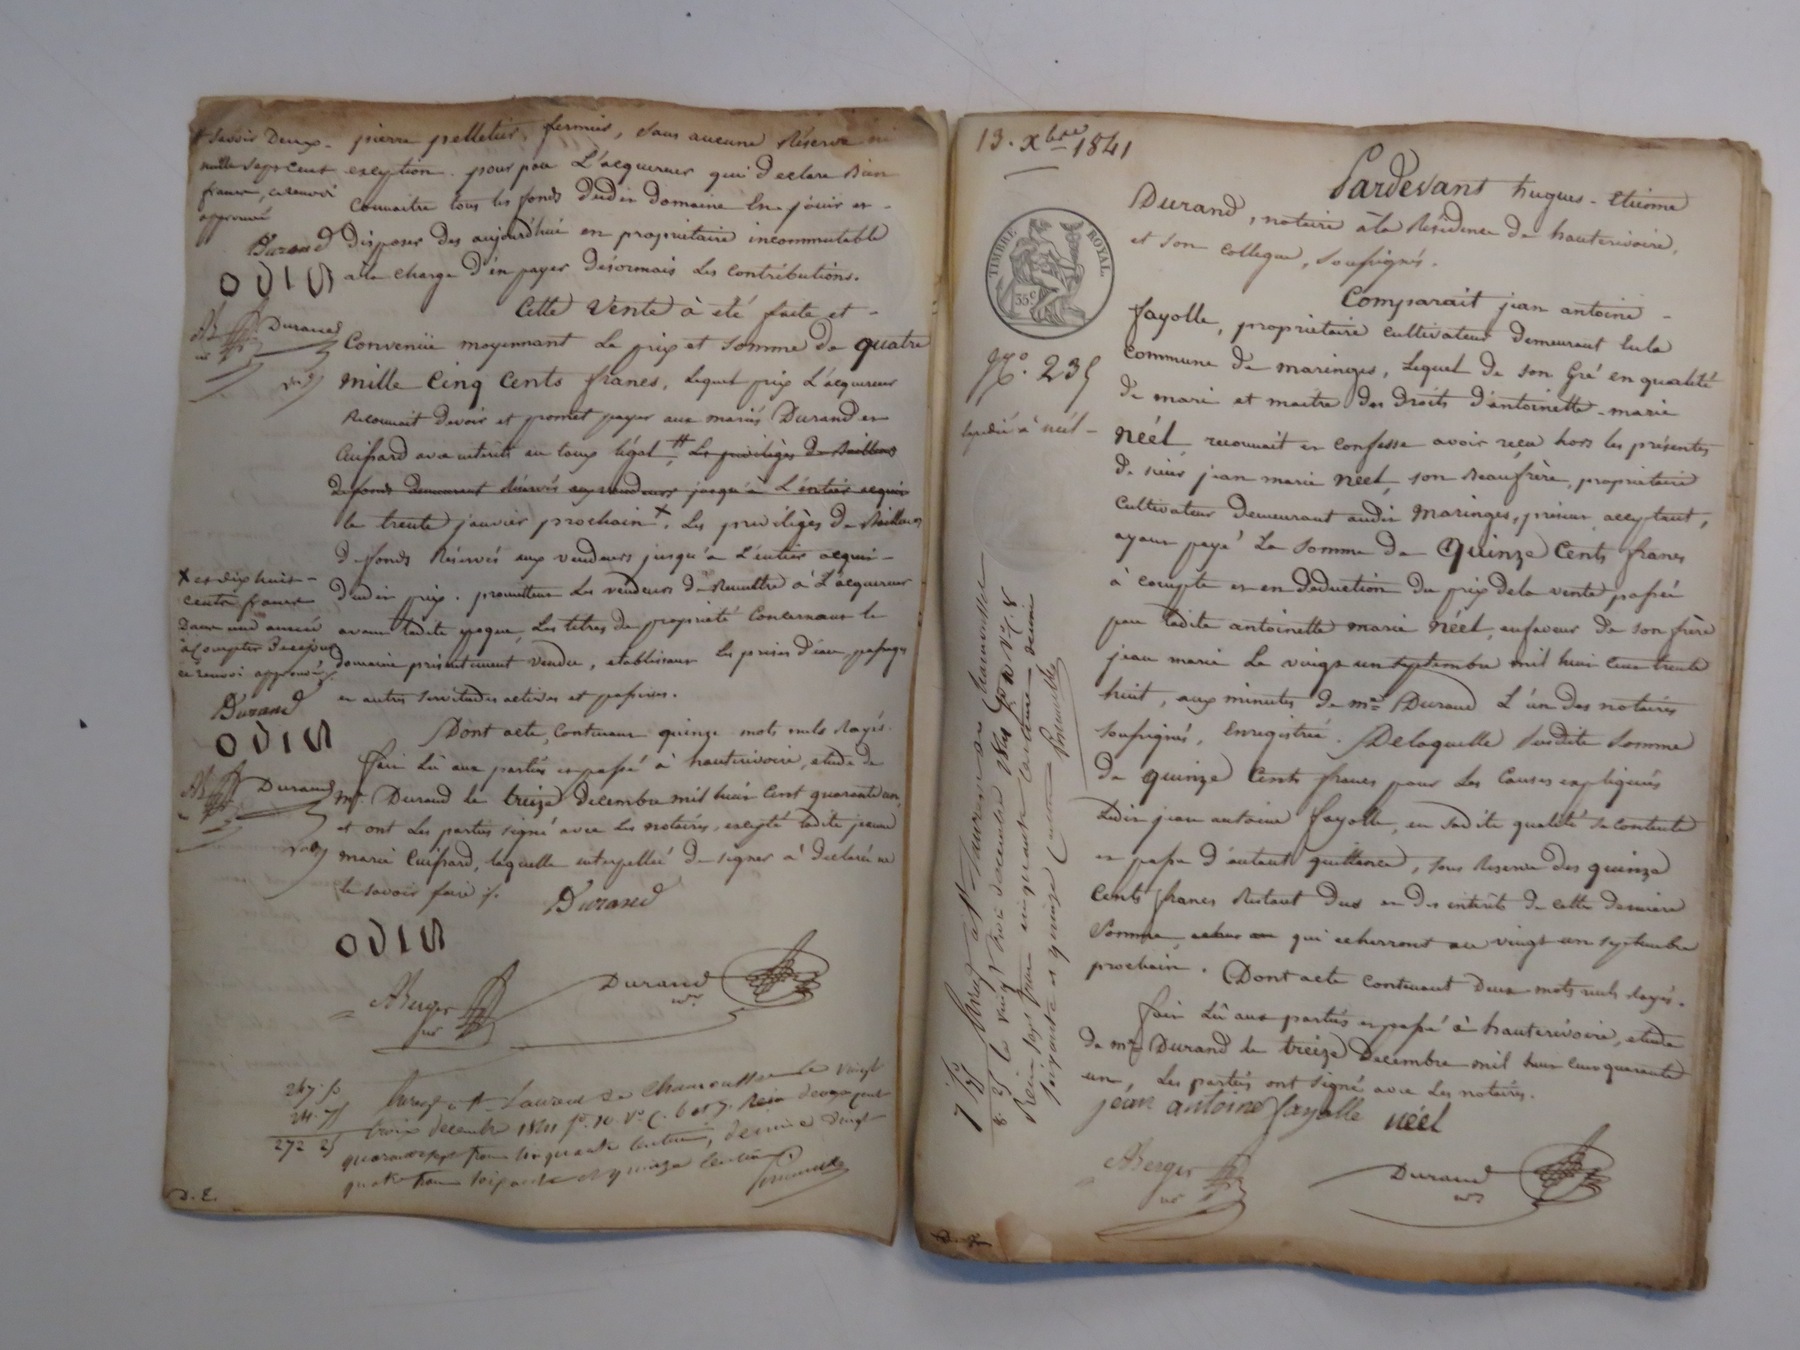 pierre pelletier, fermier, sans aucune Réserve ni
exception. pour par L'acquereur qui declare Bien
Connaitre tous les fonds dudit domaine En jouir et
disposer dès aujourd'hui en propriétaire incommutable
à la charge d'en payer désormais Les Contributions.
# Savoir Deux
mille Sept cent
francs, ce renvoi
approuvé
Durand
Cette Vente à été faite et
Convenüe moyennant Le prix et Somme de quatre
mille Cinq Cents francs, Lequel prix L'acquereur
Reconnait devoir et promet payer aux mariés Durand et
Cuissard avec intérêts au taux légal, # Les privilèges de Bailleurs
de fonds demeurant Réservés aux vendeurs jusqu'à L'entier acquit
le trente janvier prochain X. Les privilèges de Bailleurs
de fonds Réservés aux vendeurs jusqu'à L'entier acqui-
dudit prix. promettent Les vendeurs de Remettre à L'acquereur
avant ladite epoque, Les titres de propriété Concernant le
domaine présentement vendu, etablissant les prises d'eau, passages
et autres servitudes actives et passives.
X et dix huit
cents francs
Dans une année
à Compter De ce jour
ce renvoi approuvé
Durand
Durand
Dont acte, Contenant quinze mots nuls rayés.
fait Lû aux parties et passé à hauterivoire, etude de
me. Durand le treize decembre mil huit Cent quarante un,
et ont Les parties signé avec Les notaires, excepté ladite jeanne
marie Cuissard, laquelle interpellée de signer à déclaré ne
le savoir faire /.
Durand
ABerger
nre
Durand
nre
247. 50
24. 75
272 25
Enreg. à St. Laurent de Chamousset le vingt
trois decembre 1841 fo. 10. Vo. C. 6 et 7. Reçu deux cent
quarante sept francs cinquante centimes, decime vingt
quatre francs soixante et quinze centimes
D. E.
13. Xbre 1841
Pardevant hugues - Etienne
Durand, notaire à la Résidence de hauterivoire,
et son collegue, soussignés.
TIMBRE ROYAL.
35c
Comparait jean antoine
fayolle, propriétaire Cultivateur demeurant En la
commune de maringes, Lequel de son Gré en qualité
de mari et maitre des droits d'antoinette - marie
néel, reconnait et confesse avoir reçu hors les présentes
de sieur jean marie néel, son Beaufrère, propriétaire
Cultivateur demeurant audit Maringes, présent, acceptant,
ayant payé La somme de Quinze Cents francs
à compte et en déduction du prix de la vente passée
par ladite antoinette marie Néel, en faveur de son frère
jean marie Le vingt un septembre mil huit cent trente
huit, aux minutes de me. Durand L'un des notaires
soussignés, Enregistrée. De laquelle susdite somme
de quinze Cents francs pour Les Causes expliquées
Ledit jean antoine fayolle, en sadite qualité se contente
et passe d'autant quittance, sous Reserve des quinze
Cents francs Restant dus et des intérêts de cette dernière
Somme, qui echerront au vingt un septembre
prochain. Dont acte contenant Deux mots nuls rayés.
No. 235
Expédié à néel
fait Lû aux parties et passé à hauterivoire, etude
de me. Durand le treize Decembre mil huit cent quarante
un, Les parties ont signé avec Les notaires.
jean antoine fayolle néel
ABerger
nre
Durand
nre
7 50
75
8. 25
Enreg. à St. Laurent de Chamousset
le vingt trois decembre 1841
Reçu sept francs cinquante centimes decime
soixante et quinze Centimes